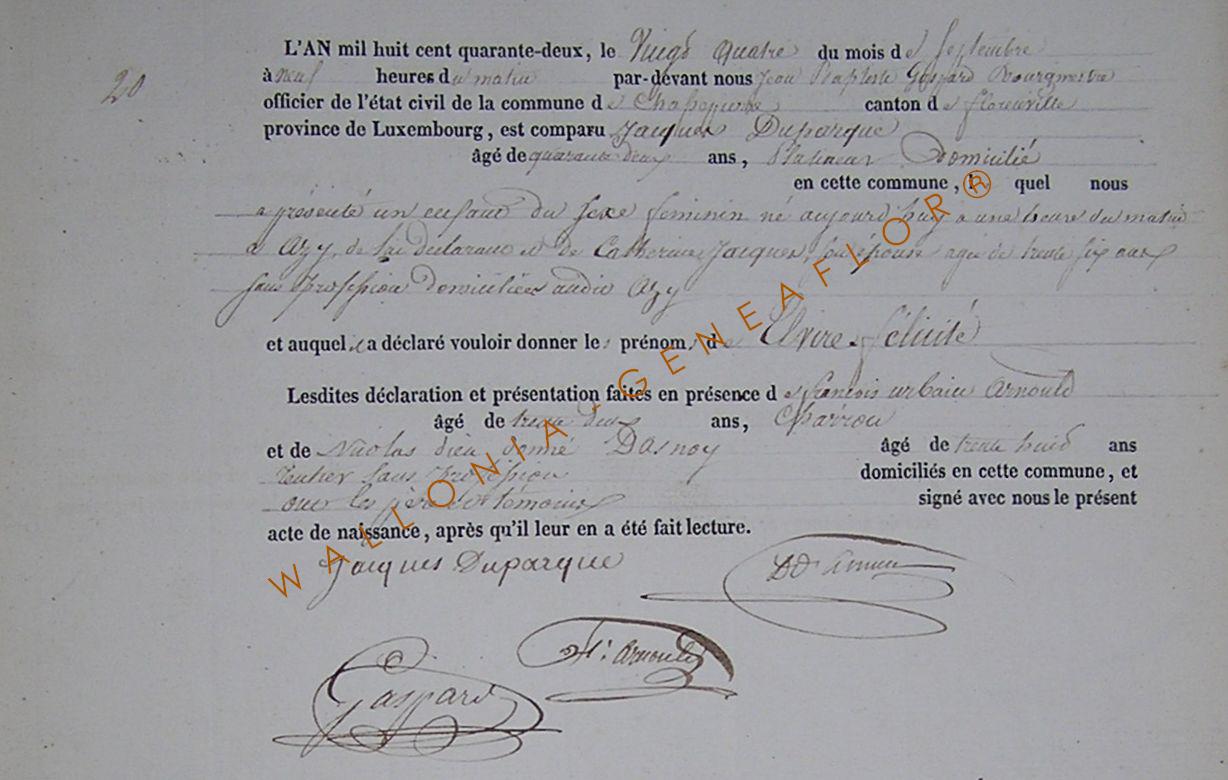 20
L'AN mil huit cent quarante-deux, le Vingt Quatre du mois de Septembre
à neuf heures du matin par-devant nous Jean Baptiste Gaspard Bourgmestre
officier de l'état civil de la commune de canton de florenville
province de Luxembourg, est comparu Jacques Duparque
âgé de quarante deux ans, Domicilié
en cette commune, le quel nous
a présenté un enfant du sexe feminin né aujourd'huy a une heure du matin
a Azy, de lui declarant et de Catherine Jacques, son épouse agée de trente six ans
sans profession domiciliées audit Azy
et auquel il a déclaré vouloir donner les prénoms de Elvire félicité
Lesdites déclaration et présentation faites en présence de francois urbain Arnould
âgé de trente deux ans, Charron
et de Nicolas dieu donné Dasnoy âgé de trente huit ans
rentier sans profession domiciliés en cette commune, et
ont les père et témoins signé avec nous le présent
acte de naissance, après qu'il leur en a été fait lecture.
Jacques Duparque
f: Arnould
Gaspard
WALLONIA - GENEAFLOR®